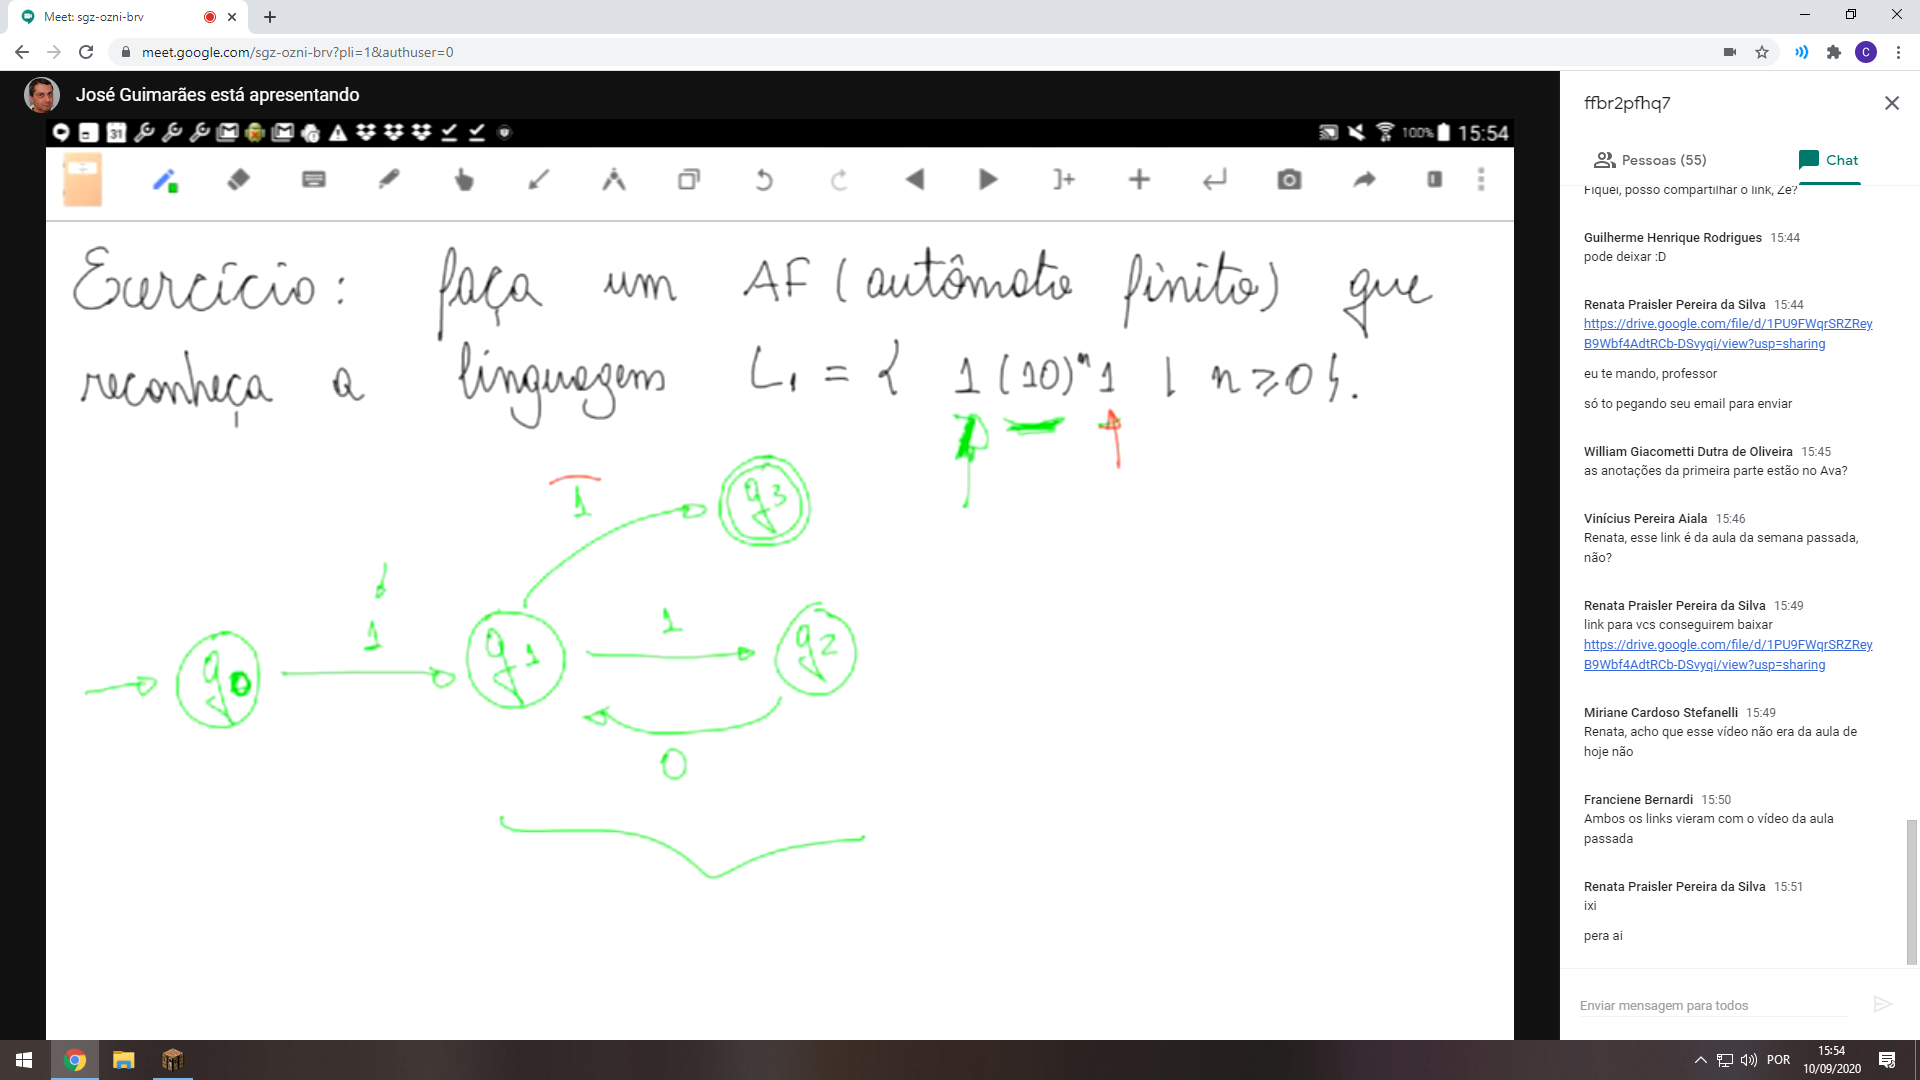 Meet: sgz-ozni-brv
meet.google.com/sgz-ozni-brv?pli=1&authuser=0
C
José Guimarães está apresentando
31
100% 15:54
Exercício: faça um AF (autômato finito) que
reconheça a linguagem L₁ = { 1 (10)ⁿ 1 | n ≥ 0 }.
1
q3
1
q0
q1
1
q2
0
ffbr2pfhq7
Pessoas (55)
Chat
Fiquei, posso compartilhar o link, Zé?
Guilherme Henrique Rodrigues 15:44
pode deixar :D
Renata Praisler Pereira da Silva 15:44
https://drive.google.com/file/d/1PU9FWqrSRZRey
B9Wbf4AdtRCb-DSvyqi/view?usp=sharing
eu te mando, professor
só to pegando seu email para enviar
William Giacometti Dutra de Oliveira 15:45
as anotações da primeira parte estão no Ava?
Vinícius Pereira Aiala 15:46
Renata, esse link é da aula da semana passada,
não?
Renata Praisler Pereira da Silva 15:49
link para vcs conseguirem baixar
https://drive.google.com/file/d/1PU9FWqrSRZRey
B9Wbf4AdtRCb-DSvyqi/view?usp=sharing
Miriane Cardoso Stefanelli 15:49
Renata, acho que esse vídeo não era da aula de
hoje não
Franciene Bernardi 15:50
Ambos os links vieram com o vídeo da aula
passada
Renata Praisler Pereira da Silva 15:51
ixi
pera ai
Enviar mensagem para todos
POR
15:54
10/09/2020